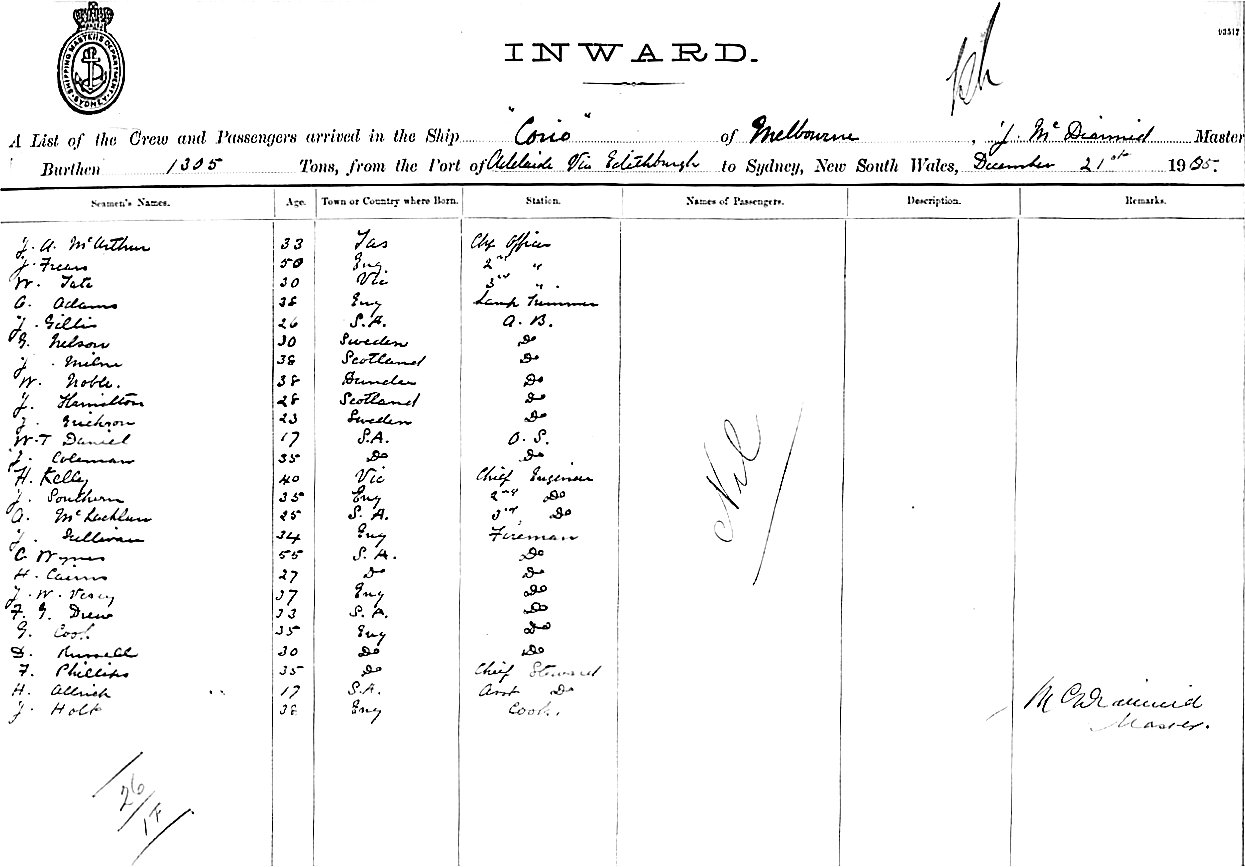 SHIPPING MASTERS DEPARTMENT SYDNEY
03517
INWARD.
A List of the Crew and Passengers arrived in the Ship "Corio" of Melbourne, J. McDiarmid Master
Burthen 1305 Tons, from the Port of Adelaide Via Edithburgh to Sydney, New South Wales, December 21st 1905.
Seamen's Names. Age. Town or Country where Born. Station. Names of Passengers. Description. Remarks.
J. A. McArthur 33 Tas Chf Officer
J. Frears 50 Eng. 2nd "
W. Tate 30 Vic 3rd "
G. Adams 38 Eng Lamp Trimmer
J. Gillis 26 S.A. A.B.
G. Nelson 30 Sweden Do
J. Milne 38 Scotland Do
W. Noble. 38 Dundee Do
J. Hamilton 28 Scotland Do
J. Erickson 23 Sweden Do
W. T Daniel 17 S.A. O.S.
J. Coleman 35 Do Do
H. Kelly 40 Vic Chief Engineer
J. Southern 35 Eng 2nd Do
A. McLachlan 25 S.A. 3rd Do
J. Sullivan 34 Eng Fireman
C Wynes 55 S.A. Do
H. Cairns 27 Do Do
J. W. Vesey 37 Eng Do
F. G. Drew 33 S.A. Do
G. Cook 35 Eng Do
D. Russell 30 Do Do
F. Phillips 35 Do Chief Steward
H. Aldrich 17 S.A. Asst Do
J. Holt 38 Eng Cook.
Nil
McDiarmid
Master.
26